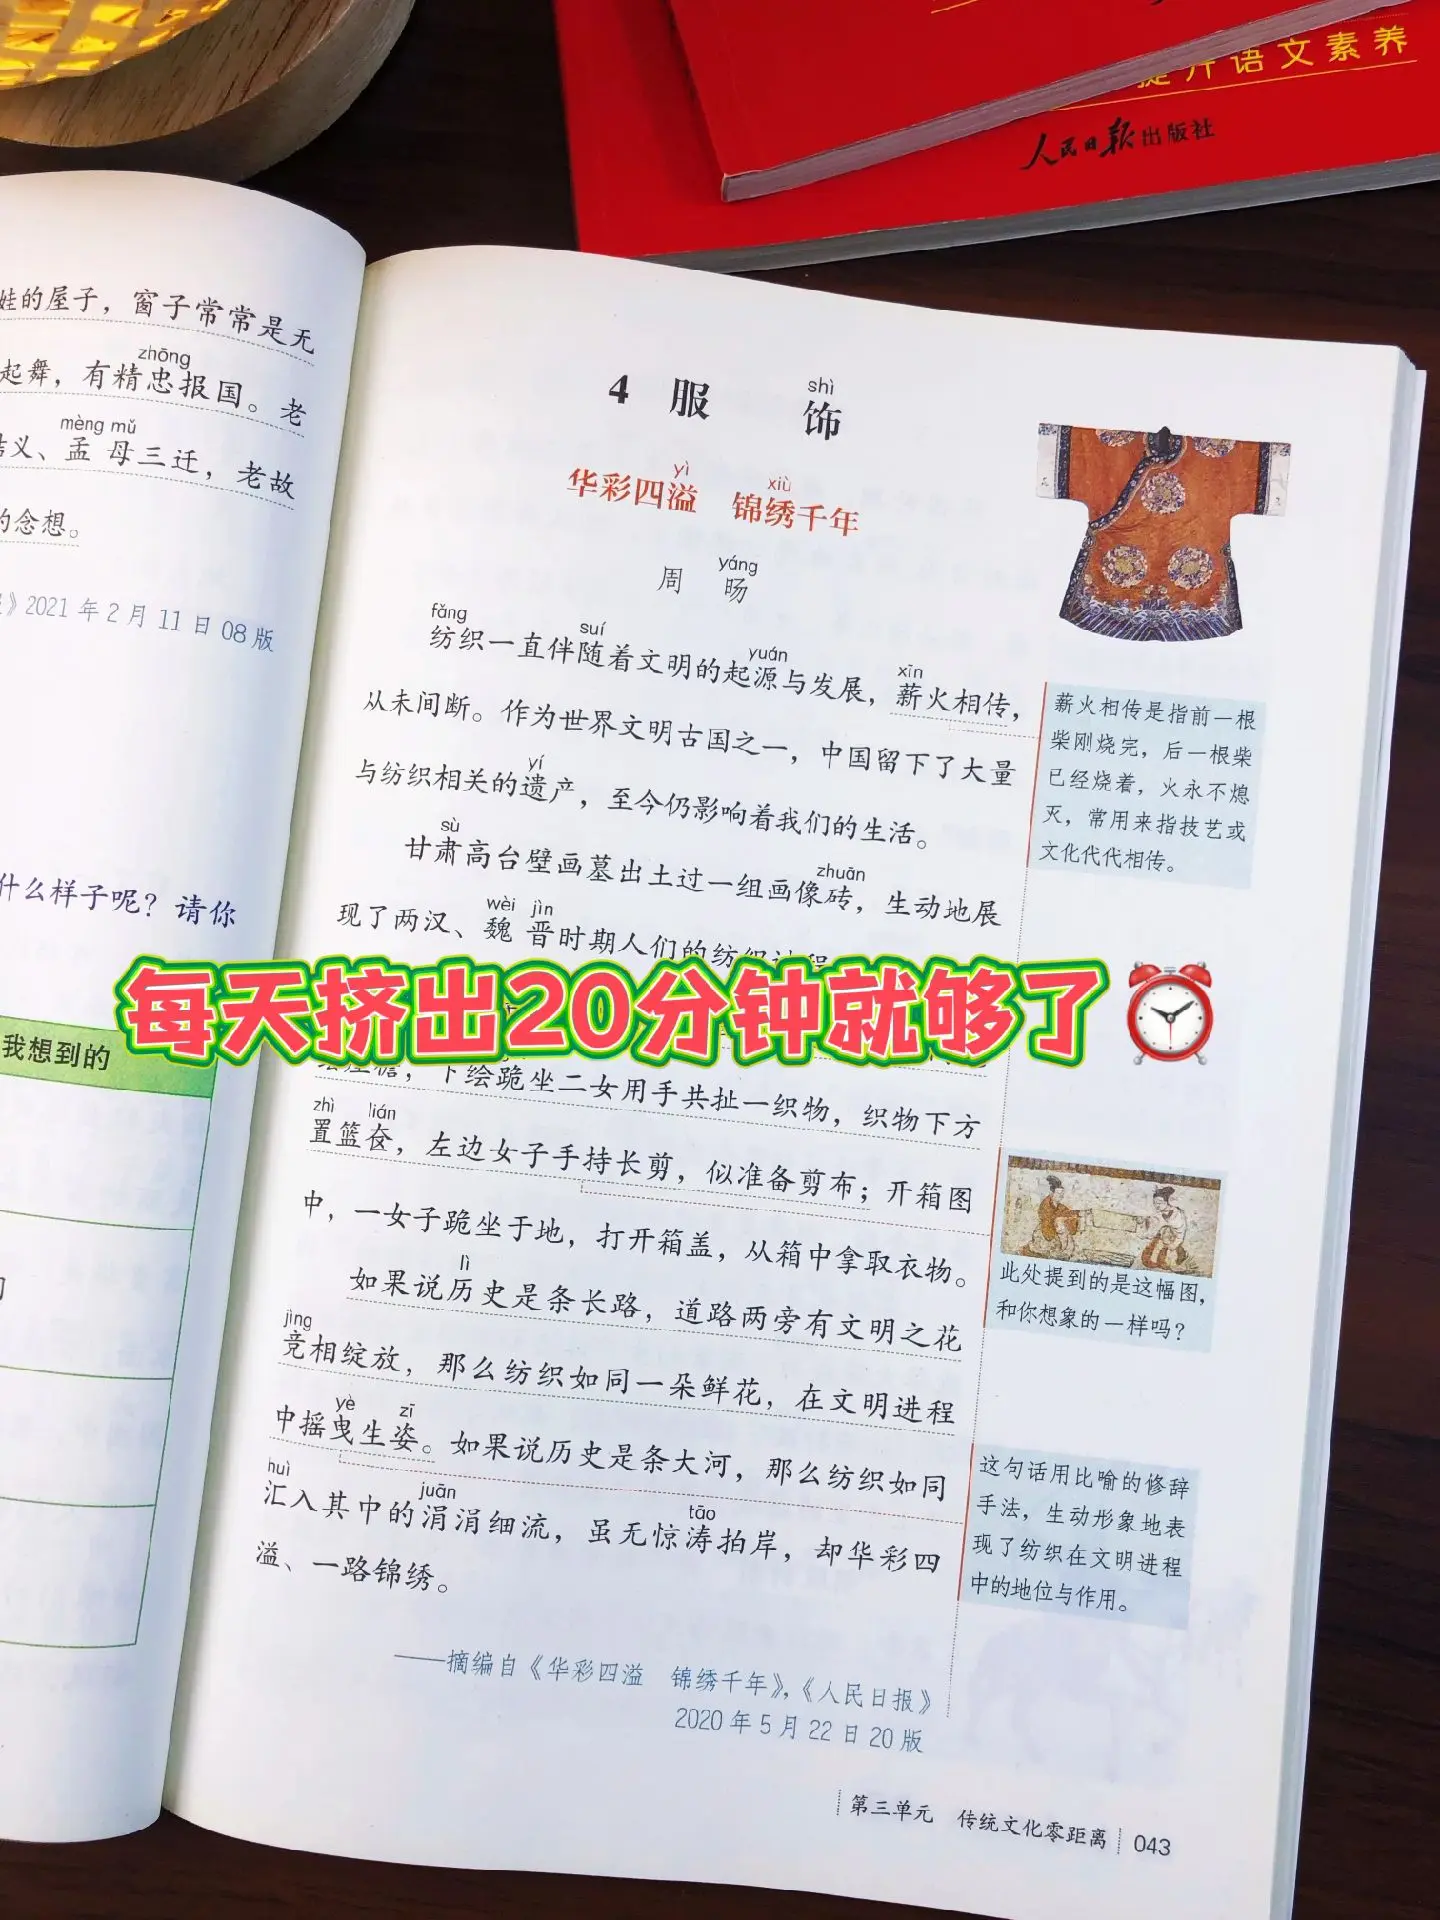 提升语文素养
人民日报出版社
娃的屋子，窗子常常是无
zhōng
起舞，有精忠报国。老
mèng mǔ
结义、孟母三迁，老故
的念想。
》2021年2月11日08版
什么样子呢？请你
我想到的
shì
4 服 饰
yì xiù
华彩四溢 锦绣千年
yáng
周 旸
fǎng suí yuán xīn
纺织一直伴随着文明的起源与发展，薪火相传，
从未间断。作为世界文明古国之一，中国留下了大量
yí
与纺织相关的遗产，至今仍影响着我们的生活。
sù zhuān
甘肃高台壁画墓出土过一组画像砖，生动地展
wèi jìn
现了两汉、魏晋时期人们的纺织过程
每天挤出20分钟就够了⏰
下绘跪坐二女用手共扯一织物，织物下方
zhì lián
置篮奁，左边女子手持长剪，似准备剪布；开箱图
中，一女子跪坐于地，打开箱盖，从箱中拿取衣物。
lì
如果说历史是条长路，道路两旁有文明之花
jìng
竞相绽放，那么纺织如同一朵鲜花，在文明进程
yè zī
中摇曳生姿。如果说历史是条大河，那么纺织如同
huì juān tāo
汇入其中的涓涓细流，虽无惊涛拍岸，却华彩四
溢、一路锦绣。
——摘编自《华彩四溢 锦绣千年》，《人民日报》
2020年5月22日20版
薪火相传是指前一根
柴刚烧完，后一根柴
已经烧着，火永不熄
灭，常用来指技艺或
文化代代相传。
此处提到的是这幅图，
和你想象的一样吗？
这句话用比喻的修辞
手法，生动形象地表
现了纺织在文明进程
中的地位与作用。
第三单元 传统文化零距离 043